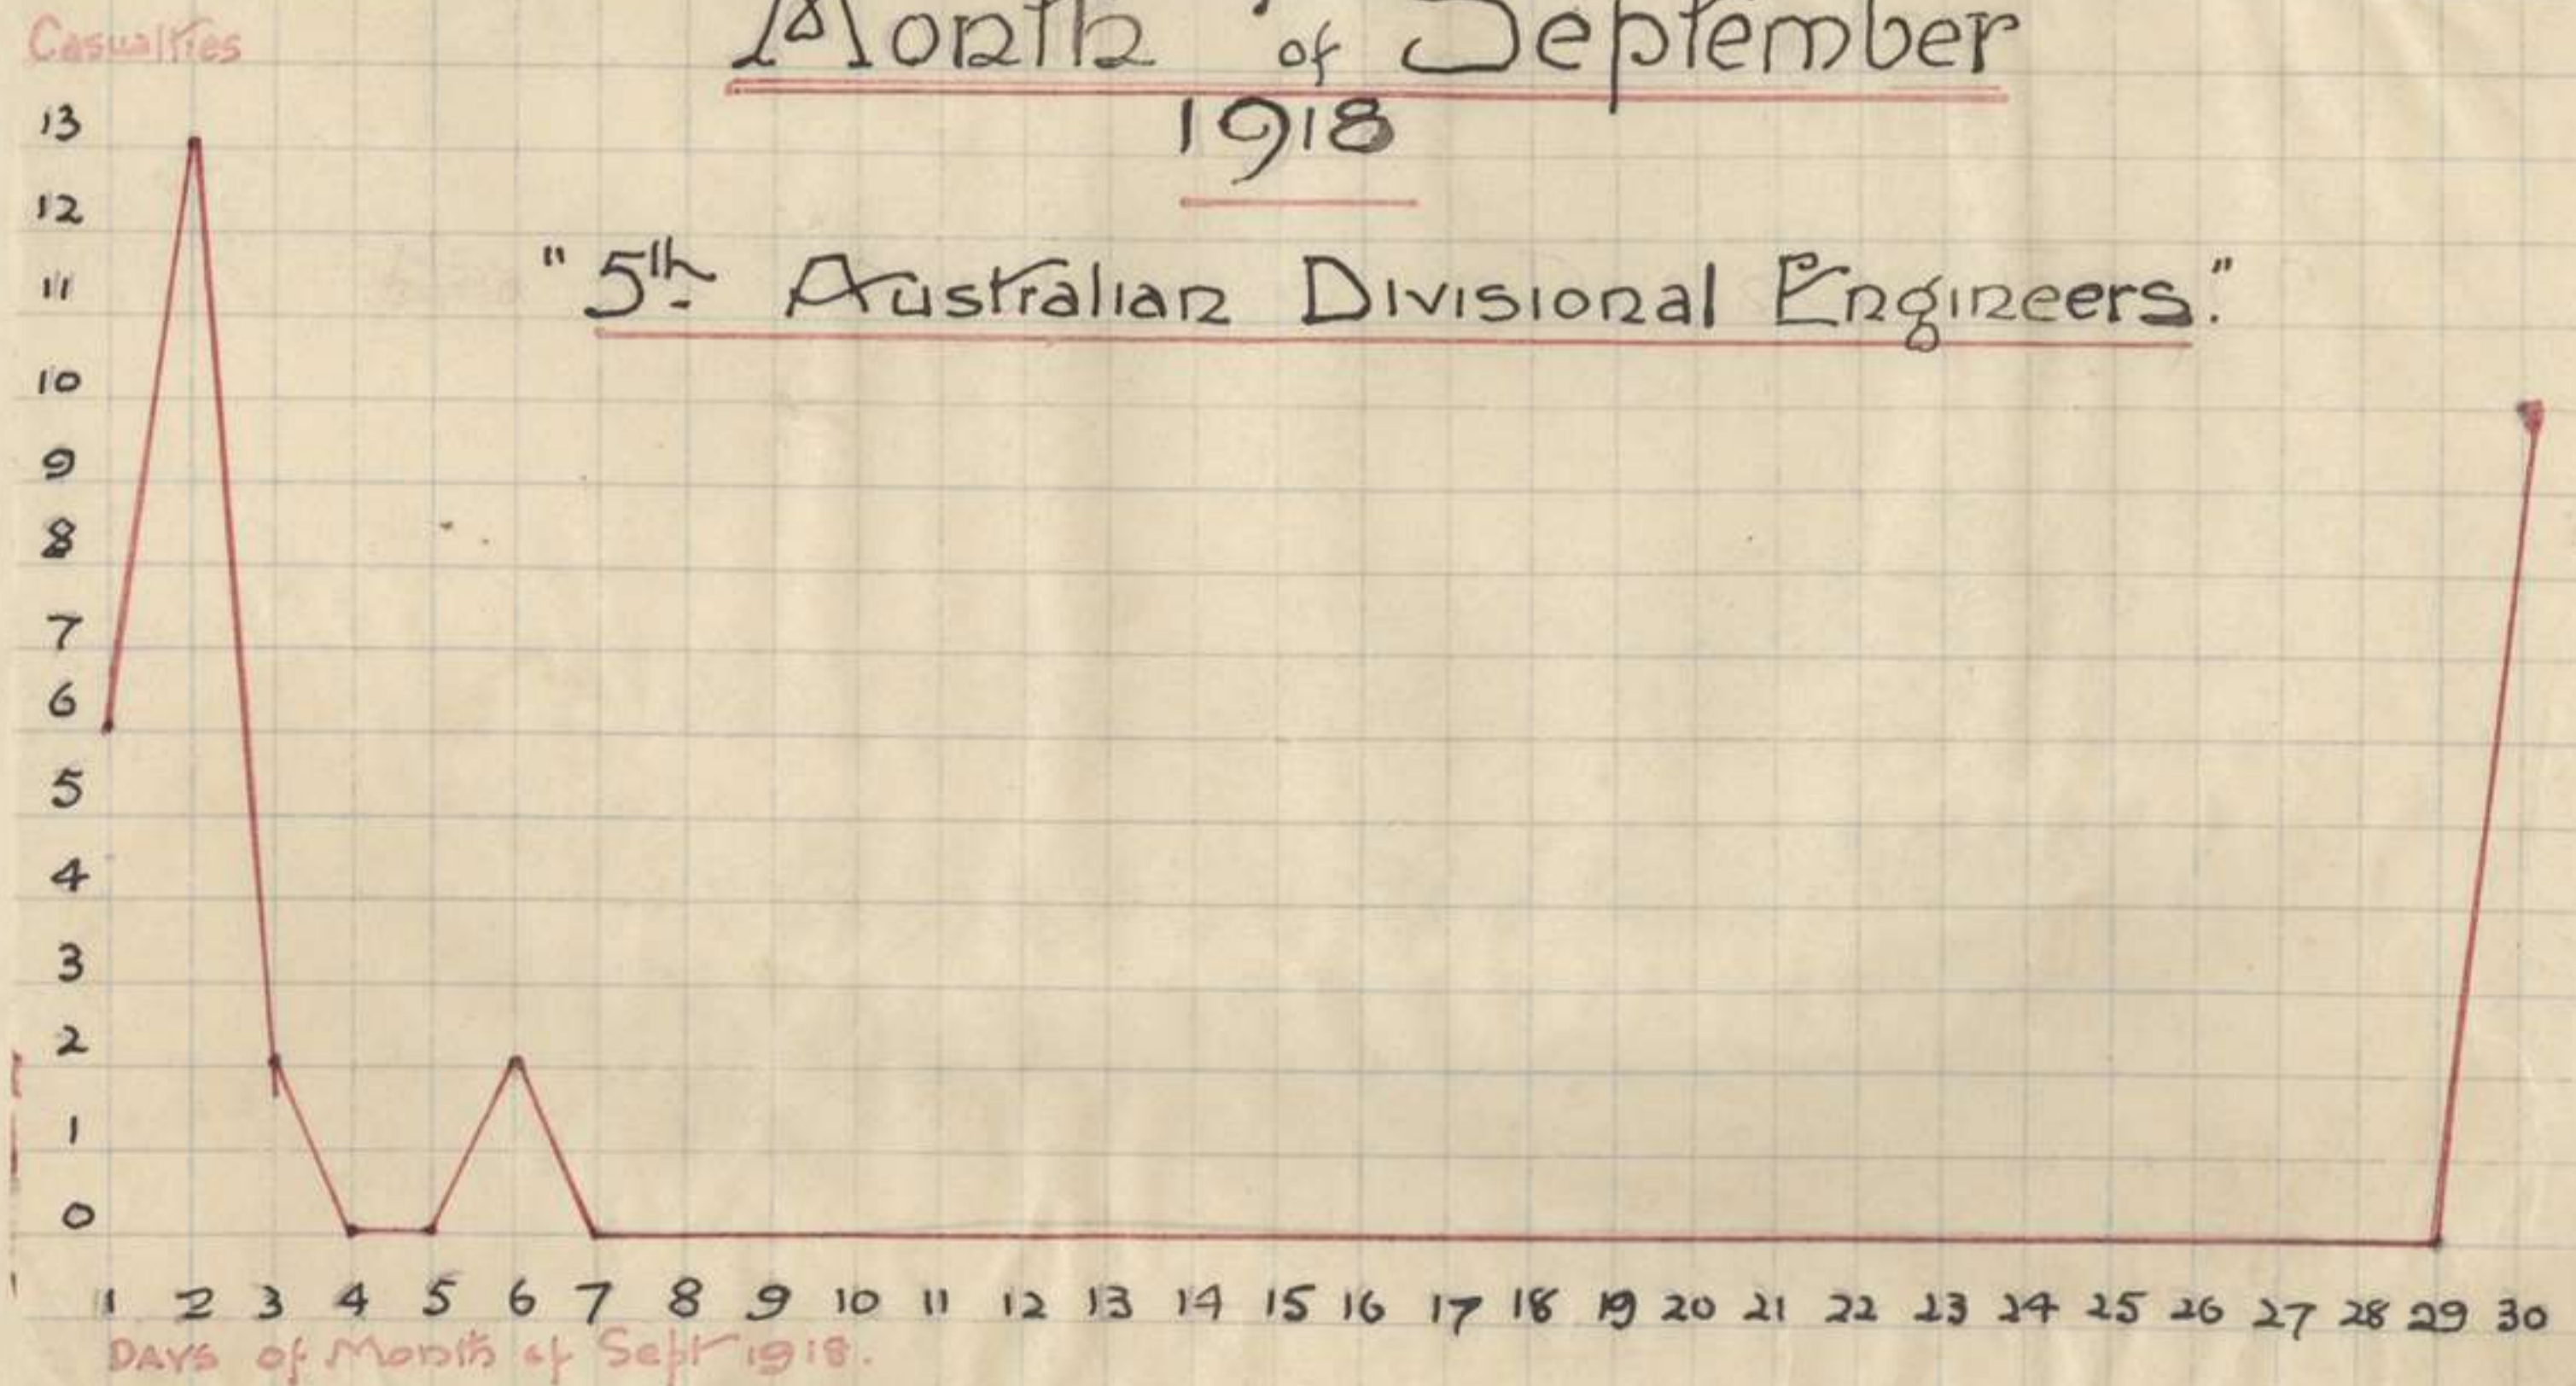 Casualties
Month of September
1918
"5th Australian Divisional Engineers."
13
12
11
10
9
8
7
6
5
4
3
2
1
0
1 2 3 4 5 6 7 8 9 10 11 12 13 14 15 16 17 18 19 20 21 22 23 24 25 26 27 28 29 30
DAYS of Month of Sept 1918.